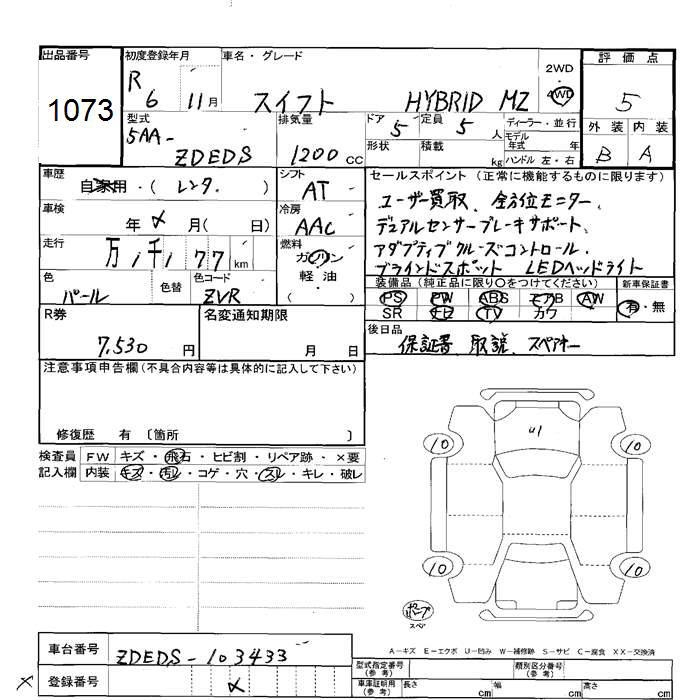 出品番号 初度登録年月 車名・グレード 2WD 評価点
1073 R 6 11月 スイフト HYBRID MZ 4WD 5
型式 排気量 ドア 定員 ディーラー・並行 外装 内装
5AA- 5 5人 モデル年式 年
ZDEDS 1200cc 形状 積載 kg ハンドル 左・右 B A
車歴 シフト セールスポイント (正常に機能するものに限ります)
自家用・(レンタ.) AT ユーザー買取、全方位モニター、
車検 冷房 デュアルセンサーブレーキサポート、
年 メ 月( 日) AAC
走行 燃料 アダプティブクルーズコントロール.
万 千 77km ガソリン
色 色替 色コード 軽油・ ブラインドスポット LEDヘッドライト
パール ZVR ( ) 装備品(純正品に限り○をつけてください) 新車保証書
R券 名変通知期限 PS PW ABS エアB AW 有・無
SR ナビ TV カワ
7,530円 月 日 後日品
保証書 取説 スペアキー
注意事項申告欄(不具合内容等は具体的に記入して下さい)
修復歴 有 〔箇所 〕
u1
10 10
検査員 FW キズ・飛石・ヒビ割・リペア跡・×要
記入欄 内装 キズ・汚れ・コゲ・穴・スレ・キレ・破レ
10 10
A-キズ E-エクボ U-凹み W-補修跡 S-サビ C-腐食 XX-交換済
車台番号 ZDEDS-103433 型式指定番号(参考) 類別区分番号(参考)
登録番号 メ 車庫証明用(参考) 長さ cm 幅 cm 高さ cm